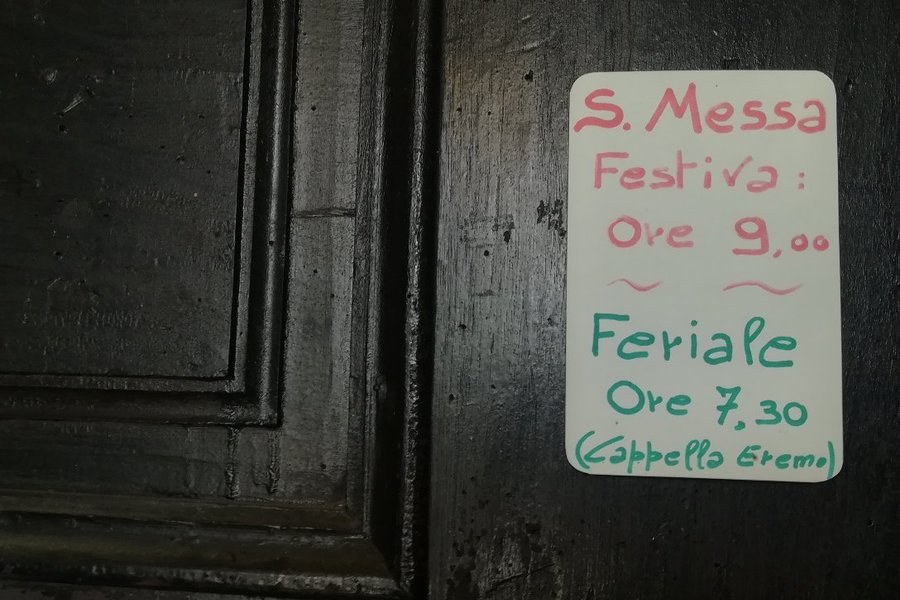 S. Messa
Festiva:
Ore 9,00
Feriale
Ore 7,30
(Cappella Eremo)